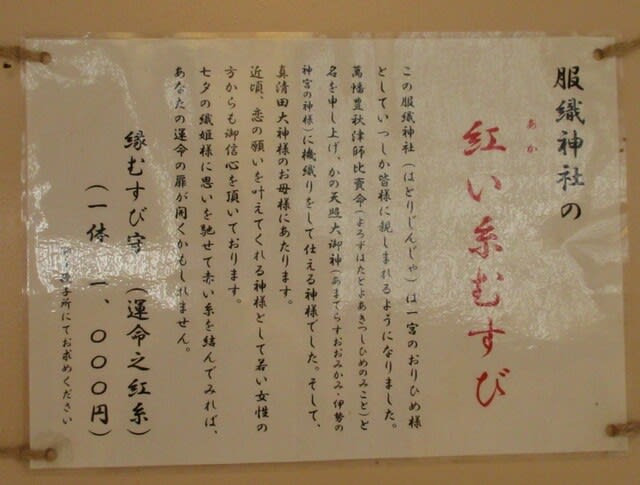 服織神社の
あか
紅い糸むすび
この服織神社(はとりじんじゃ)は一宮のおりひめ様
としていつしか皆様に親しまれるようになりました。
萬幡豊秋津師比賣命(よろずはたとよあきつしひめのみこと)と
名を申し上げ、かの天照大御神(あまてらすおおみかみ・伊勢の
神宮の神様)に機織りをして仕える神様でした。そして、
真清田大神様のお母様にあたります。
近頃、恋の願いを叶えてくれる神様として若い女性の
方からも御信心を頂いております。
七夕の織姫様に思いを馳せて赤い糸を結んでみれば、
あなたの運命の扉が開くかもしれません。
縁むすび守(運命之紅糸)
(一体 一、〇〇〇円)
授与所にてお求めください